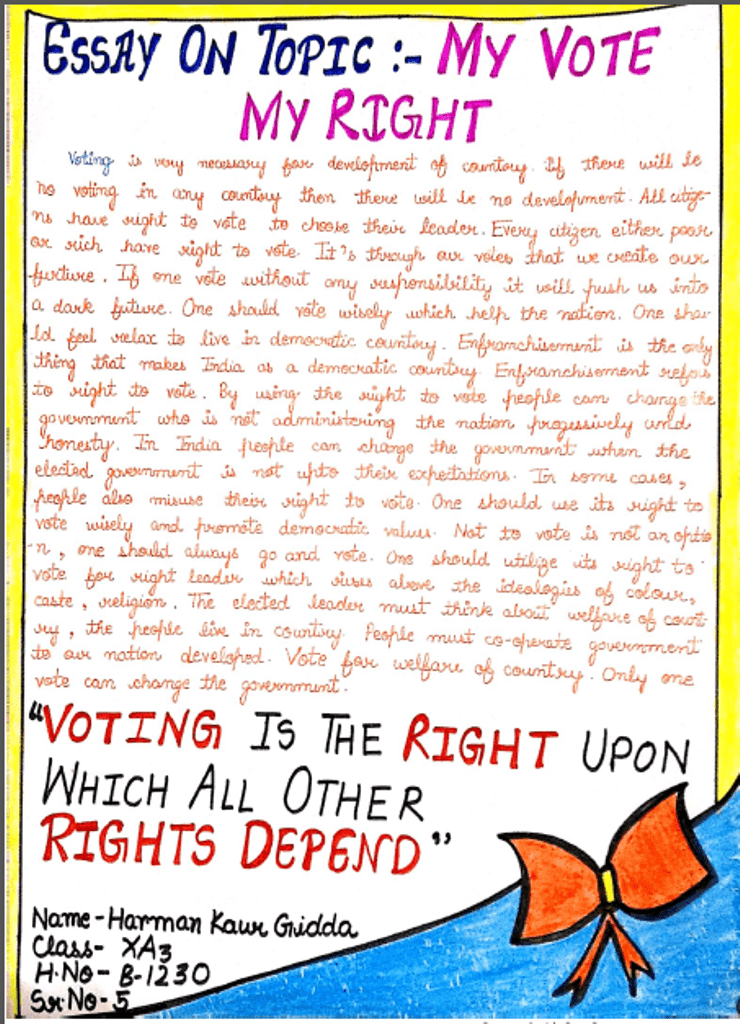 ESSAY ON TOPIC :- MY VOTE
MY RIGHT
Voting is very necessary for development of country. If there will be
no voting in any country then there will be no development. All citize-
ns have right to vote to choose their leader. Every citizen either poor
or rich have right to vote. It's through our votes that we create our
furture. If one vote without any responsibility it will push us into
a dark future. One should vote wisely which help the nation. One shou-
ld feel relax to live in democratic country. Enfranchisement is the only
thing that makes India as a democratic country. Enfranchisement refers
to right to vote. By using the right to vote people can change the
government who is not administering the nation progessively and
honesty. In India people can change the government when the
elected government is not upto their expectations. In some cases,
people also misuse their right to vote. One should use its right to
vote wisely and promote democratic values. Not to vote is not an optio
-n, one should always go and vote. One should utilize its right to
vote for right leader which rises above the ideologies of colour,
caste, religion. The elected leader must think about welfare of count
ry, the people live in country. People must co-operate government
to our nation developed. Vote for welfare of country. Only one
vote can change the government.
"VOTING IS THE RIGHT UPON
WHICH ALL OTHER
RIGHTS DEPEND"
Name- Harman Kaur Gridda
Class- XA3
H.No- B-1230
Sr.No- 5